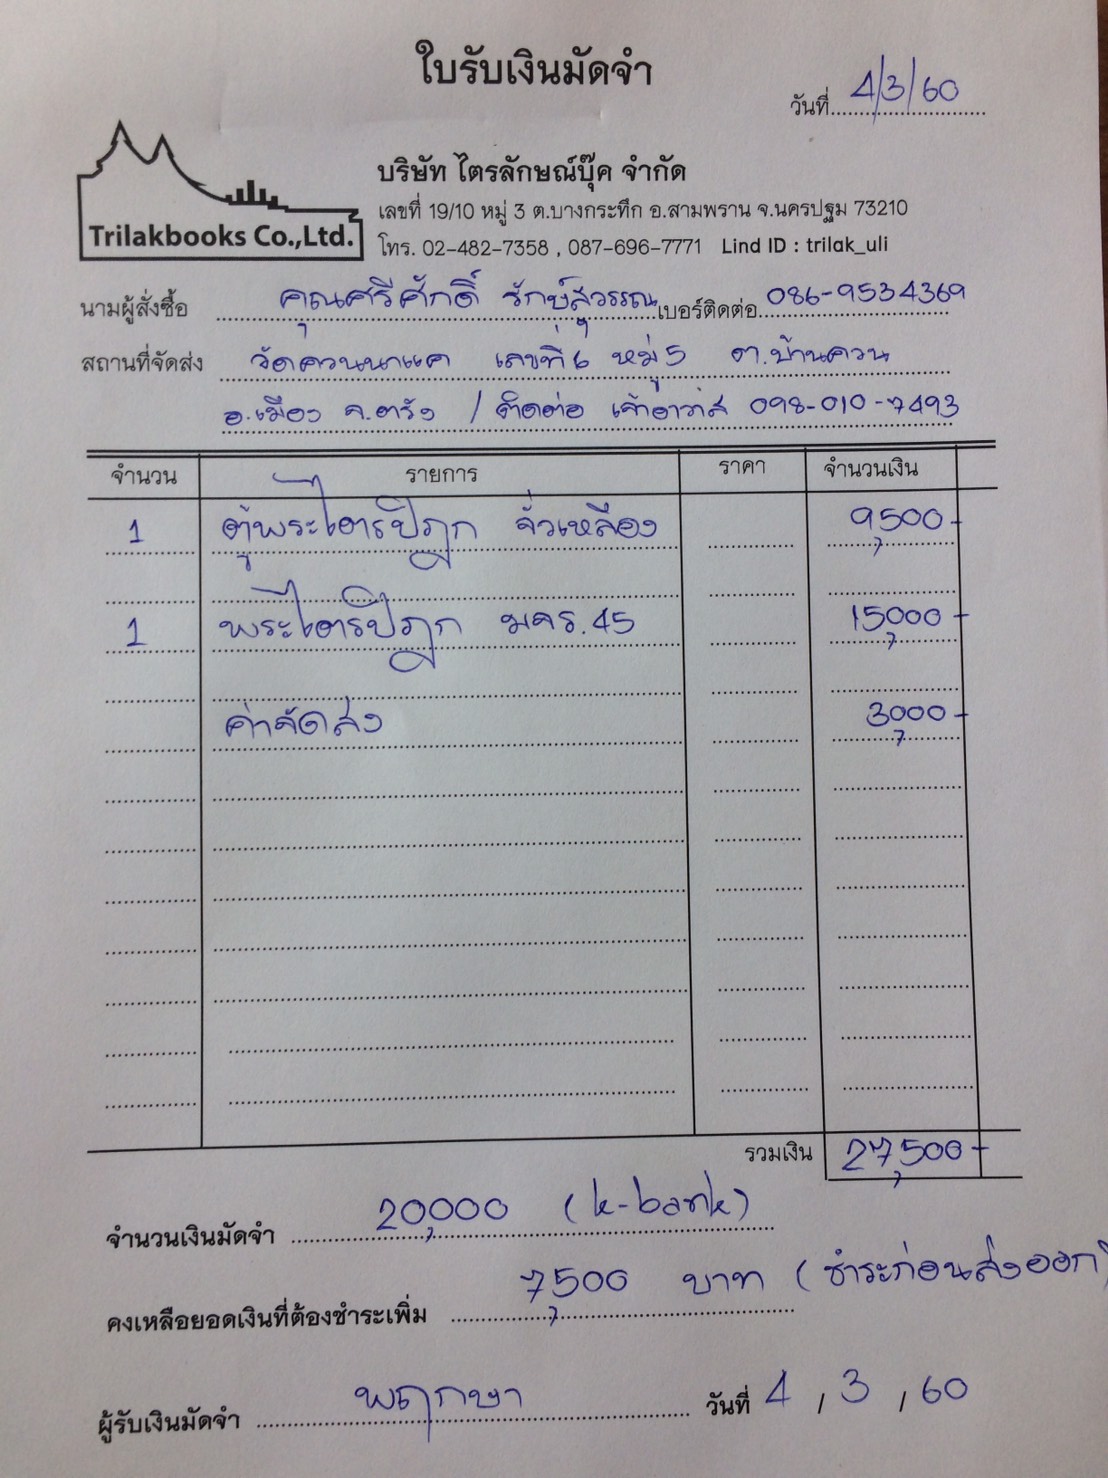 ใบรับเงินมัดจำ
วันที่ 4/3/60
บริษัท ไตรลักษณ์บุ๊ค จำกัด
เลขที่ 19/10 หมู่ 3 ต.บางกระทึก อ.สามพราน จ.นครปฐม 73210
Trilakbooks Co.,Ltd.
โทร. 02-482-7358 , 087-696-7771 Lind ID : trilak_uli
นามผู้สั่งซื้อ คุณศรีศักดิ์ รักษ์สุวรรณ เบอร์ติดต่อ 086-9534369
สถานที่จัดส่ง วัดควนนาแค เลขที่ 6 หมู่ 5 ต.บ้านควน
อ.เมือง จ.ตรัง / ติดต่อ เจ้าอาวาส 098-010-7493
จำนวน รายการ ราคา จำนวนเงิน
1 ตู้พระไตรปิฎก จั่วเหลือง 9,500-
1 พระไตรปิฎก มจร.45 15,000-
ค่าจัดส่ง 3,000-
รวมเงิน 27,500-
จำนวนเงินมัดจำ 20,000 (k-bank)
คงเหลือยอดเงินที่ต้องชำระเพิ่ม 7,500 บาท (ชำระก่อนส่งออก)
ผู้รับเงินมัดจำ พฤกษา วันที่ 4 , 3 , 60